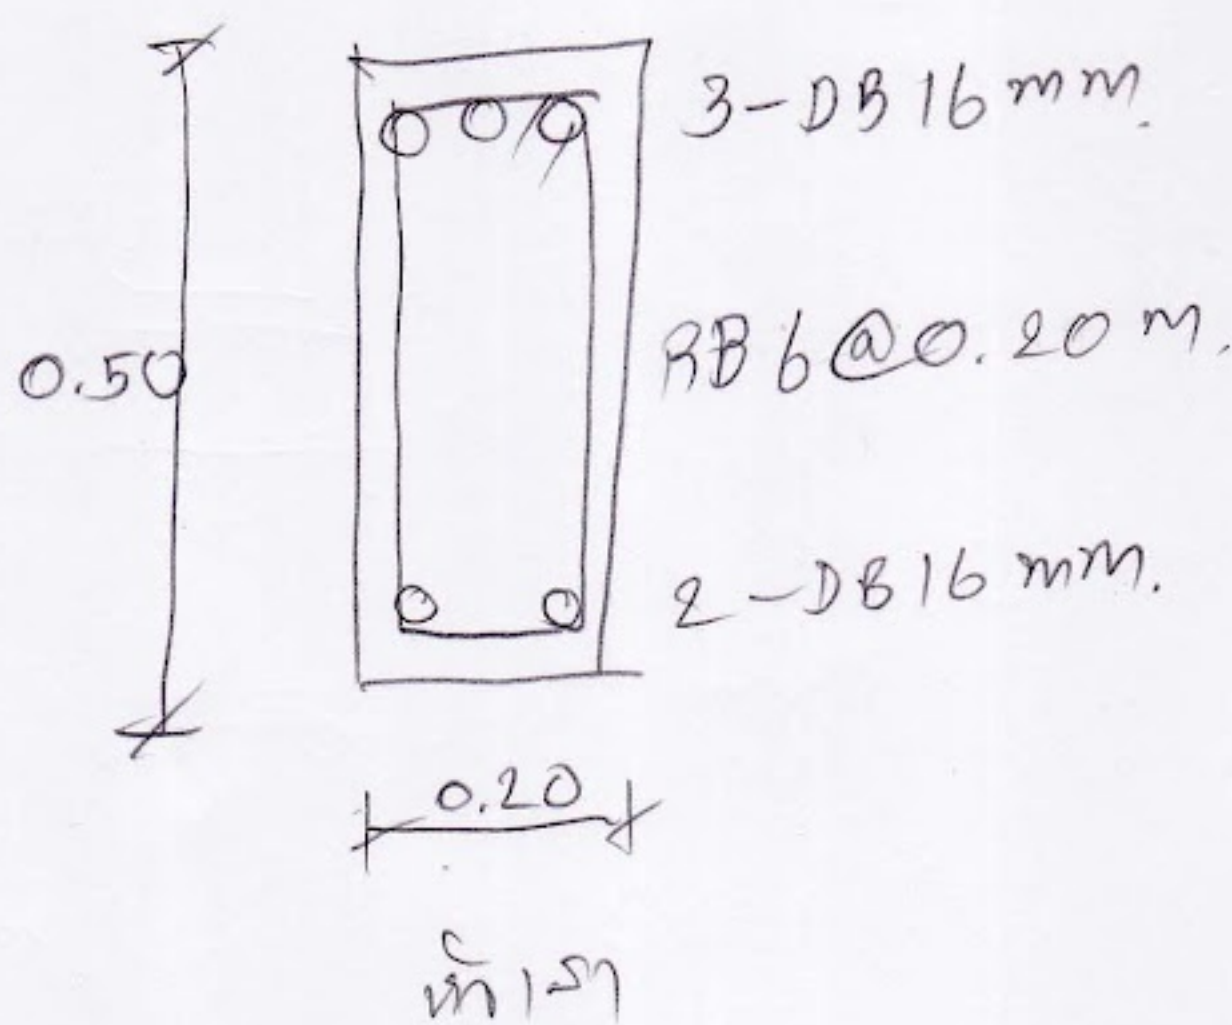 3-DB16 mm.
0.50
RB6@0.20 m.
2-DB16 mm.
0.20
หัวเสา